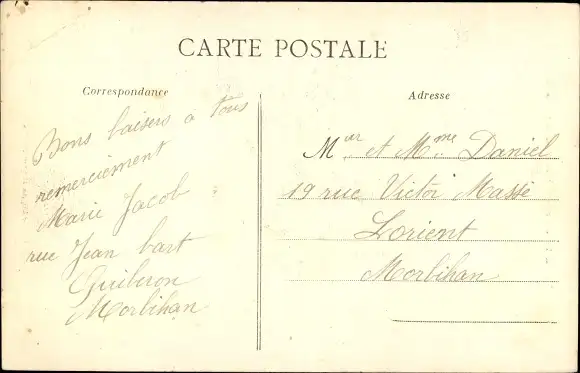 CARTE POSTALE
Correspondance
Bons baisers à tous
remerciement
Marie Jacob
rue Jean bart
Quiberon
Morbihan
Adresse
Meur et Mme Daniel
19 rue Victor Massé
Lorient
Morbihan